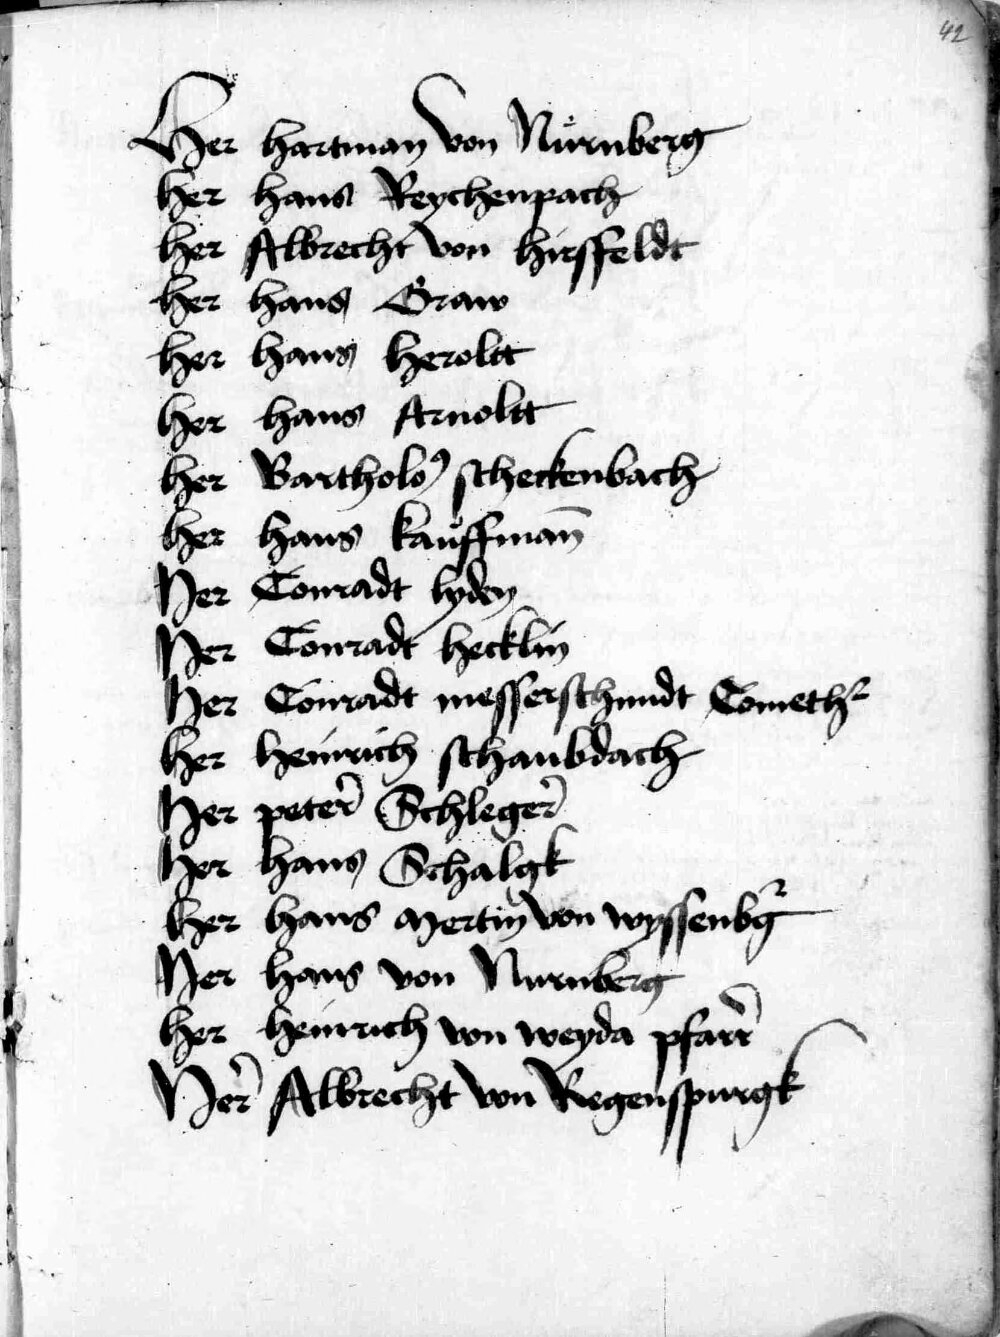 42
Her hartman von Nůrnberg
her hans Reychenpach
her Albrecht von hirsffeldt
her hans Graw
her hans heroltt
her hans Arnoltt
her Bartholoꝰ scheckenbach
her hans kaůffman̄
Her Conradt lyden
Her Conradt hecklin
Her Conradt messerschmidt Cometh
her heinrich schaubdach
Her peter Schleger
Her hans Schalgk
her hans Mertin von wyssenbg
Her hans von Nurnberg
her heinrich von weyda pfarr
Her Albrecht von Regenspurgk